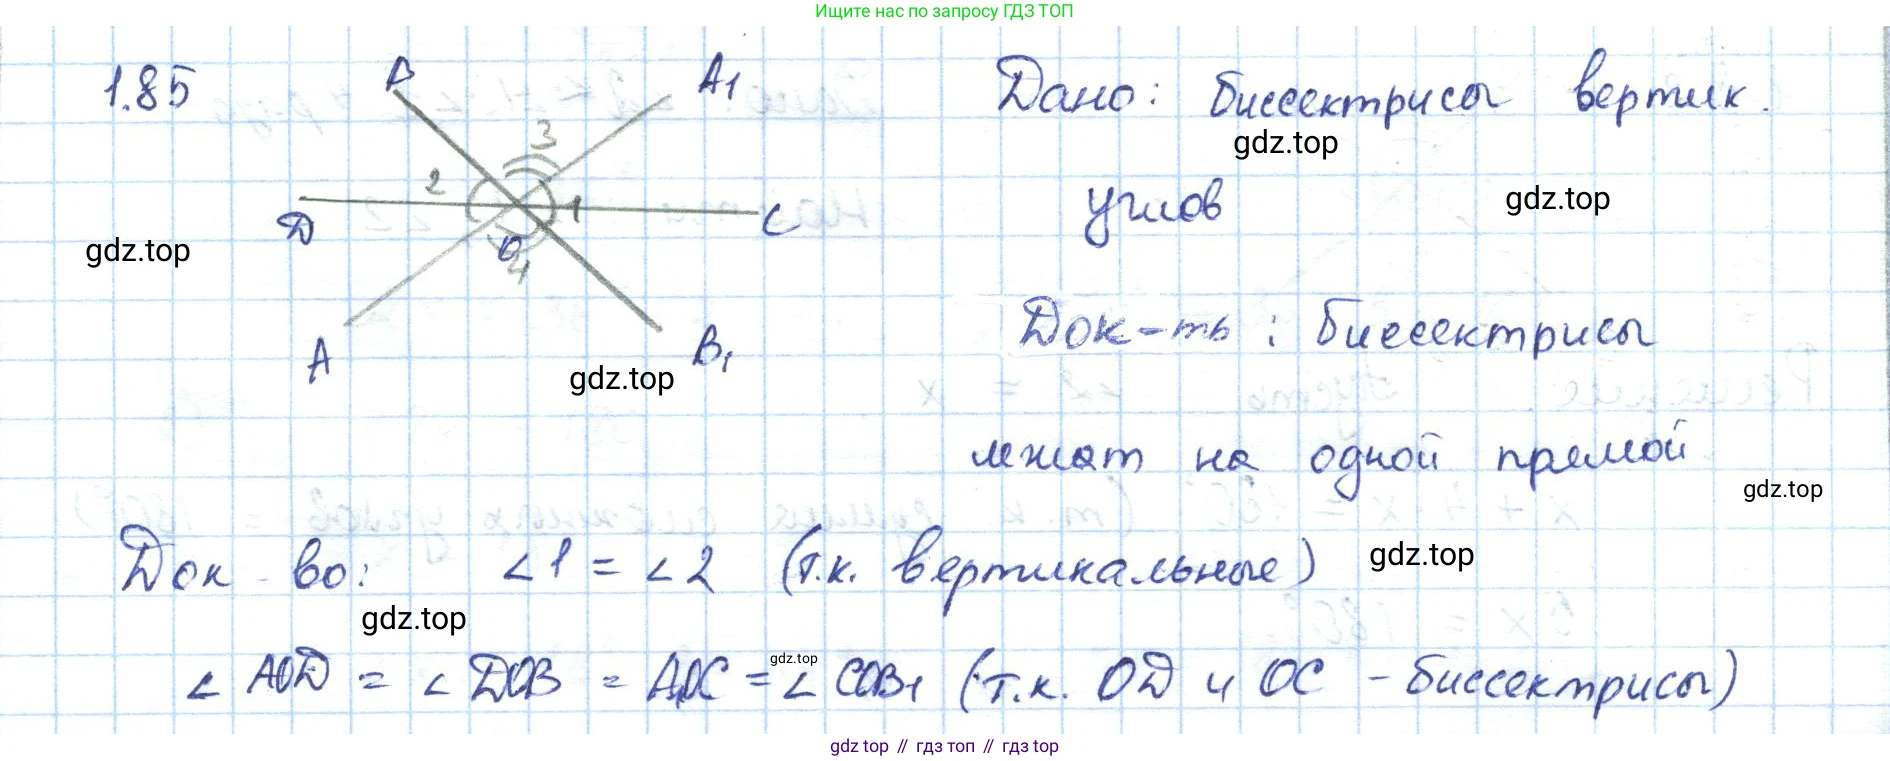 Ищите нас по запросу ГДЗ ТОП
1.85
B
A1
Дано: биссектрисы вертик.
3
gdz.top
2
1
D
C
O
4
углов
gdz.top
gdz.top
Док-ть: биссектрисы
A
B1
gdz.top
лежат на одной прямой
gdz.top
Док-во: ∠1 = ∠2 (т.к. вертикальные)
gdz.top
gdz.top
∠AOD = ∠DOB = A1OC = ∠COB1 (т.к. OD и OC - биссектрисы)
gdz.top
gdz top // гдз топ // гдз top